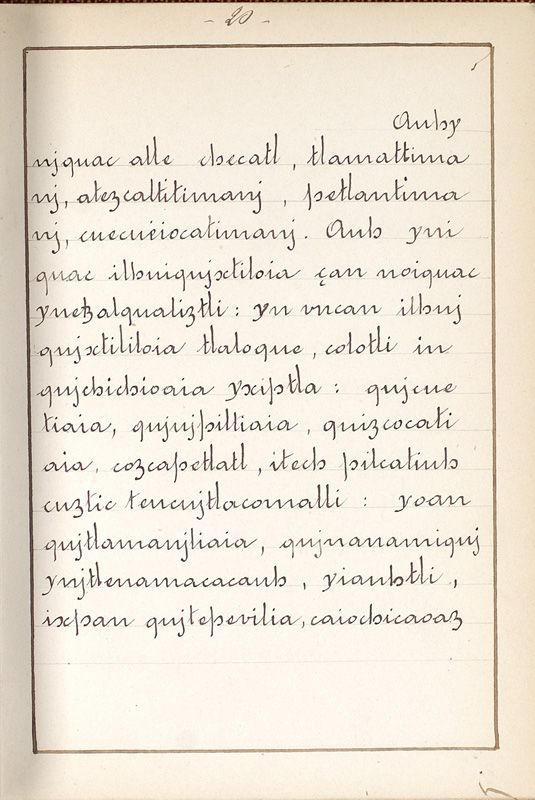 - 20 -
Auhy
njquac alle ehecatl, tlamattima
nj, atezcaltitimanj, petlantima
nj, cuecueiocatimanj. Auh yni
quac ilhuiqujxtiloia çan noiquac
ynetzalqualiztli: yn vncan ilhuj
qujxtililoia tlaloque, colotli in
qujchichioaia yxiptla: qujcue
tiaia, qujujpiltiaia, quizcocati
aia, cozcapetlatl, itech pilcatiuh
cuztic tencujtlacomalli: yoan
qujtlamanjliaia, qujnanamiquj
ynjtlenamacacauh, yiauhtli,
ixpan qujtepevilia, caiochicaoaz